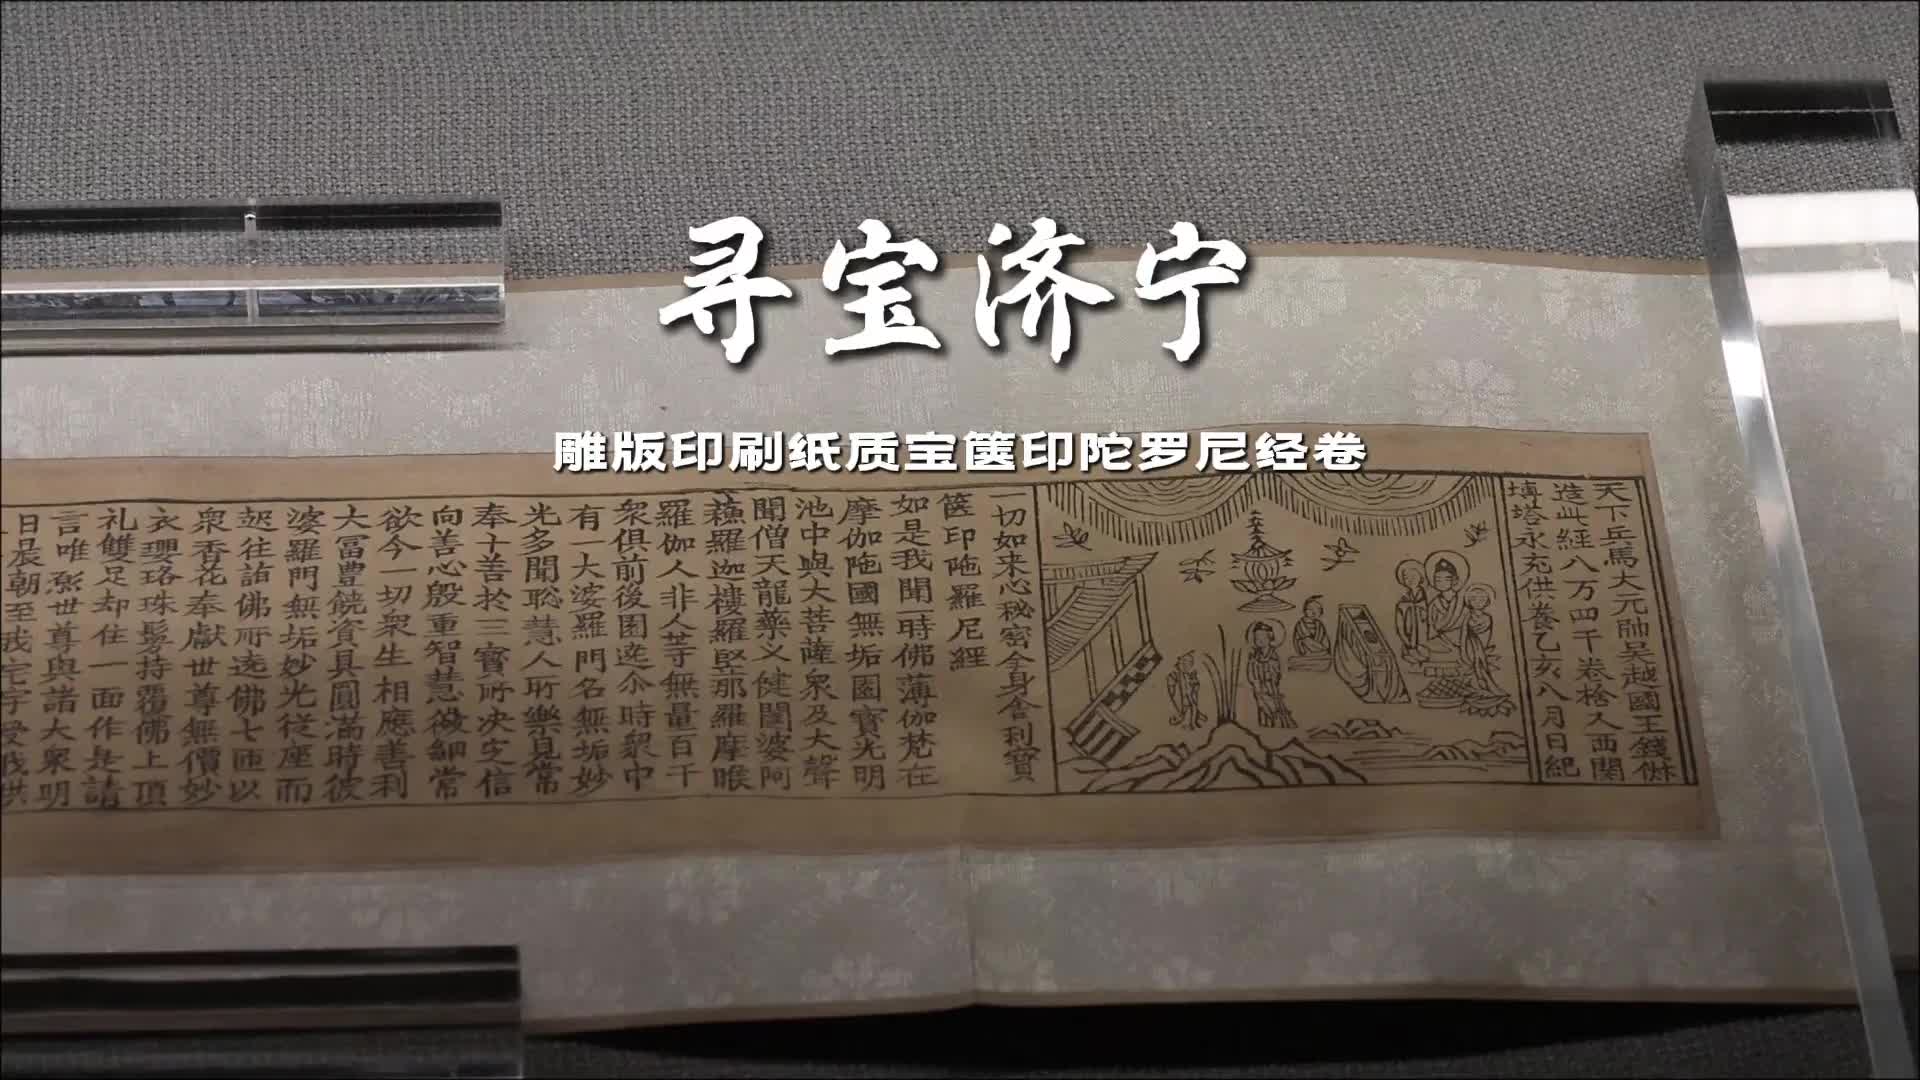 寻宝济宁
雕版印刷纸质宝箧印陀罗尼经卷
天下兵馬大元帥吳越國王錢俶
造此經八万四千卷捨入西關
塼塔永充供養乙亥八月日紀
一切如来心秘密全身舍利寶
篋印陁羅尼經
如是我聞一時佛薄伽梵在
摩伽陁國無垢園寶光明
池中與大菩薩衆及大聲
聞僧天龍藥叉健闥婆阿
蘓羅迦樓羅堅那羅摩睺
羅伽人非人等無量百千
衆俱前後圍遶尒時衆中
有一大婆羅門名無垢妙
光多聞聡慧人所樂見常
奉十善於三寶所决定信
向善心殷重智慧微細常
欲令一切衆生相應善利
大冨豊饒資具圓滿時彼
婆羅門無垢妙光従座而
起往詣佛所遶佛七匝以
衆香花奉獻世尊無價妙
衣瓔珞珠鬘持覆佛上頂
礼雙足却住一面作是請
言唯願世尊與諸大衆明
日晨朝至我宅宇受我供